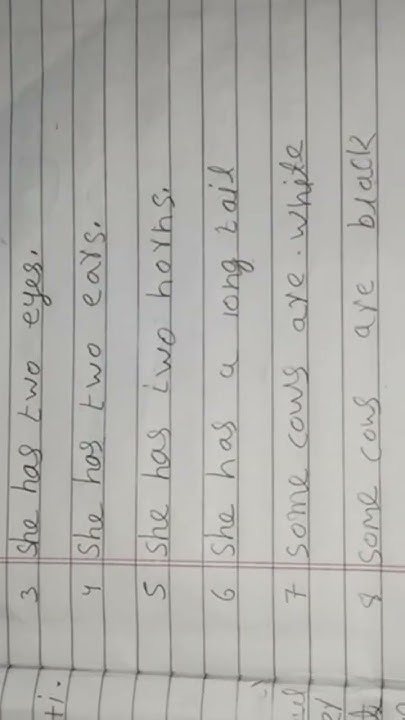 3 She has two eyes.
4 She has two ears.
5 She has two horns.
6 She has a long tail
7 Some cows are. white
8 Some cows are black
ti.